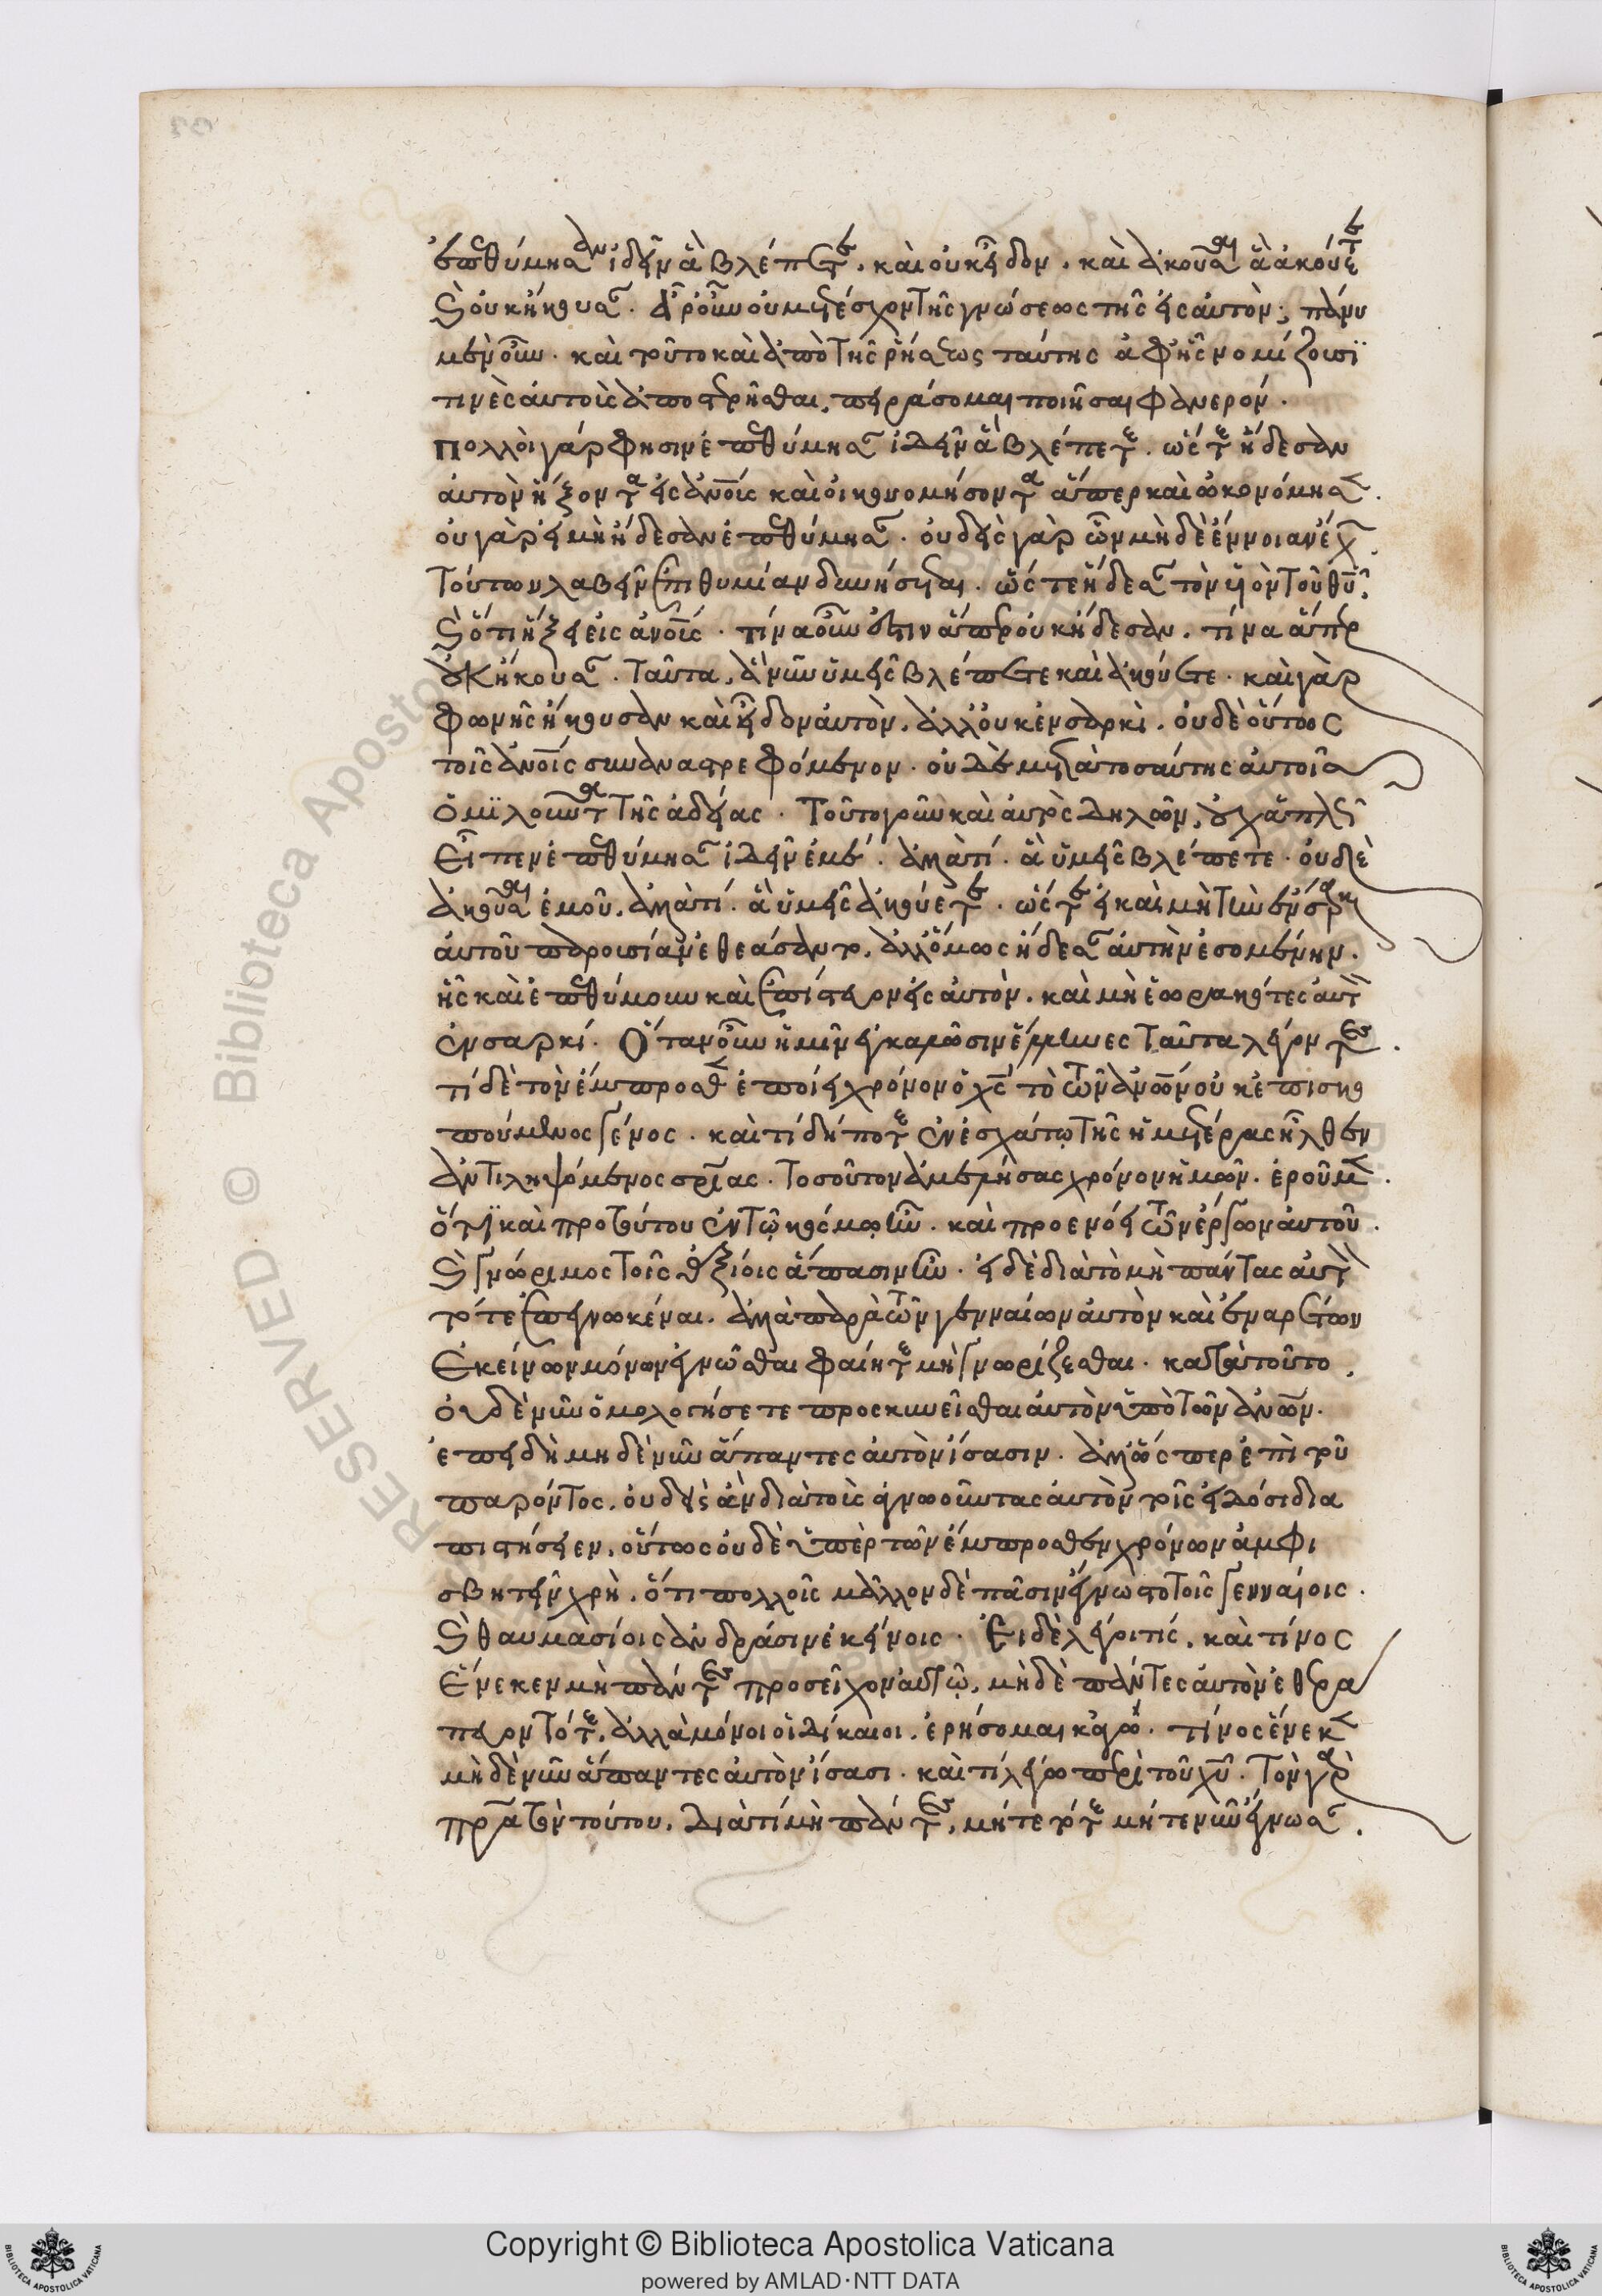 ἐπεθύμησαν ἰδεῖν ἃ βλέπετε, καὶ οὐκ εἶδον, καὶ ἀκοῦσαι ἃ ἀκούετε
καὶ οὐκ ἤκουσαν. ἆρ' οὖν οὐ μετέσχον τῆς γνώσεως τῆς εἰς αὐτόν; πάνυ
μὲν οὖν. καὶ τοῦτο καὶ ἀπὸ τῆς ῥήσεως ταύτης ἀφ' ἧς νομίζουσί
τινὲς αὐτοῖς ἀπεστερῆσθαι, πειράσομαι ποιῆσαι φανερόν.
πολλοὶ γάρ φησιν ἐπεθύμησαν ἰδεῖν ἃ βλέπετε. ὥστε ᾔδεσαν
αὐτὸν ἥξοντα εἰς ἀνους καὶ οἰκονομήσοντα ἅπερ καὶ ᾠκονόμησεν.
οὐ γὰρ εἰ μὴ ᾔδεσαν ἐπεθύμησαν. οὐδεὶς γὰρ ὧν μὴ δὲ ἔννοιαν ἔχει
τούτων λαβεῖν ἐπιθυμίαν δυνήσεται. ὥστε ᾔδεσαν τὸν υἱὸν τοῦ θυ
καὶ ὅτι ἥξει εἰς ἀνους. τίνα οὖν ἐστιν ἅπερ οὐκ ᾔδεσαν, τίνα ἅπερ
οὐκ ἤκουσαν. ταῦτα, ἃ νῦν ὑμεῖς βλέπετε καὶ ἀκούετε. καὶ γὰρ
φωνῆς ἤκουσαν καὶ εἶδον αὐτὸν, ἀλλ' οὐκ ἐν σαρκὶ, οὐδὲ οὕτως
τοῖς ἀνοις συναναστρεφόμενον. οὐδὲ μετὰ τοσαύτης αὐτοῖς
ὁμιλοῦντα τῆς ἀδείας. τοῦτο γοῦν καὶ αὐτὸς δηλῶν, οὐχ ἁπλῶς
εἶπεν ἐπεθύμησαν ἰδεῖν ἐμέ. ἀλλὰ τί. ἃ ὑμεῖς βλέπετε. οὐδὲ
ἀκοῦσαι ἐμοῦ, ἀλλὰ τί. ἃ ὑμεῖς ἀκούετε. ὥστε εἰ καὶ μὴ τὴν ἔνσαρκον
αὐτοῦ παρουσίαν ἐθεάσαντο, ἀλλ' ὅμως ᾔδεσαν αὐτὴν ἐσομένην.
ἧς καὶ ἐπεθύμουν καὶ ἐπίστευον εἰς αὐτὸν, καὶ μὴ ἑωρακότες αὐτὸν
ἐν σαρκί. Ὅταν οὖν ἡμῖν ἐγκαλῶσιν ἕλληνες ταῦτα λέγοντες.
τί δὲ τὸν ἔμπροσθεν ἐποίει χρόνον ὁ χς τὸ τῶν ἀνων οὐκ ἐπισκο
πούμενος γένος. καὶ τί δήποτε ἐν ἐσχάτῳ τῆς ἡμετέρας ἦλθεν
ἀντιληψόμενος σωτηρίας. τοσοῦτον ἀμελήσας χρόνον ἡμῶν. ἐροῦμεν.
ὅτι καὶ πρὸ τούτου ἐν τῷ κόσμῳ ἦν. καὶ προενόει τῶν ἔργων αὐτοῦ.
καὶ γνώριμος τοῖς ἀξίοις ἅπασιν ἦν. εἰ δὲ διὰ τὸ μὴ πάντας αὐτὸν
τότε ἐπεγνωκέναι. ἀλλὰ παρὰ τῶν γενναίων αὐτὸν καὶ ἐναρέτων
ἐκείνων μόνων ἐγνῶσθαι φαίητε μὴ γνωρίζεσθαι. κατὰ τοῦτο,
οὐδὲ νῦν ὁμολογήσετε προσκυνεῖσθαι αὐτὸν ὑπὸ τῶν ἀνων.
ἐπειδὴ μηδὲ νῦν ἅπαντες αὐτὸν ἴσασιν. ἀλλ' ὥσπερ ἐπὶ τοῦ
παρόντος, οὐδεὶς ἂν διὰ τοὺς ἀγνοοῦντας αὐτὸν τοῖς εἰδόσι δια
πιστήσειεν, οὕτως οὐδὲ ὑπὲρ τῶν ἔμπροσθεν χρόνων ἀμφι
σβητεῖν χρὴ. ὅτι πολλοῖς μᾶλλον δὲ πᾶσιν ἔγνωστο τοῖς γενναίοις.
καὶ θαυμασίοις ἀνδράσιν ἐκείνοις. Εἰ δὲ λέγοι τίς, καὶ τίνος
ἕνεκεν μὴ πάντες προσεῖχον αὐτῷ, μὴ δὲ πάντες αὐτὸν ἐθερά
πευον τότε, ἀλλὰ μόνοι οἱ δίκαιοι, ἐρήσομαι κἀγώ. τίνος ἕνεκεν
μὴ δὲ νῦν ἅπαντες αὐτὸν ἴσασι. καὶ τί λέγω περὶ τοῦ χυ. τὸν γὰρ
πρα τὸν τούτου, διὰ τί μὴ πάντες, μήτε τότε μήτε νῦν ἔγνωσαν.
Copyright © Biblioteca Apostolica Vaticana
powered by AMLAD·NTT DATA